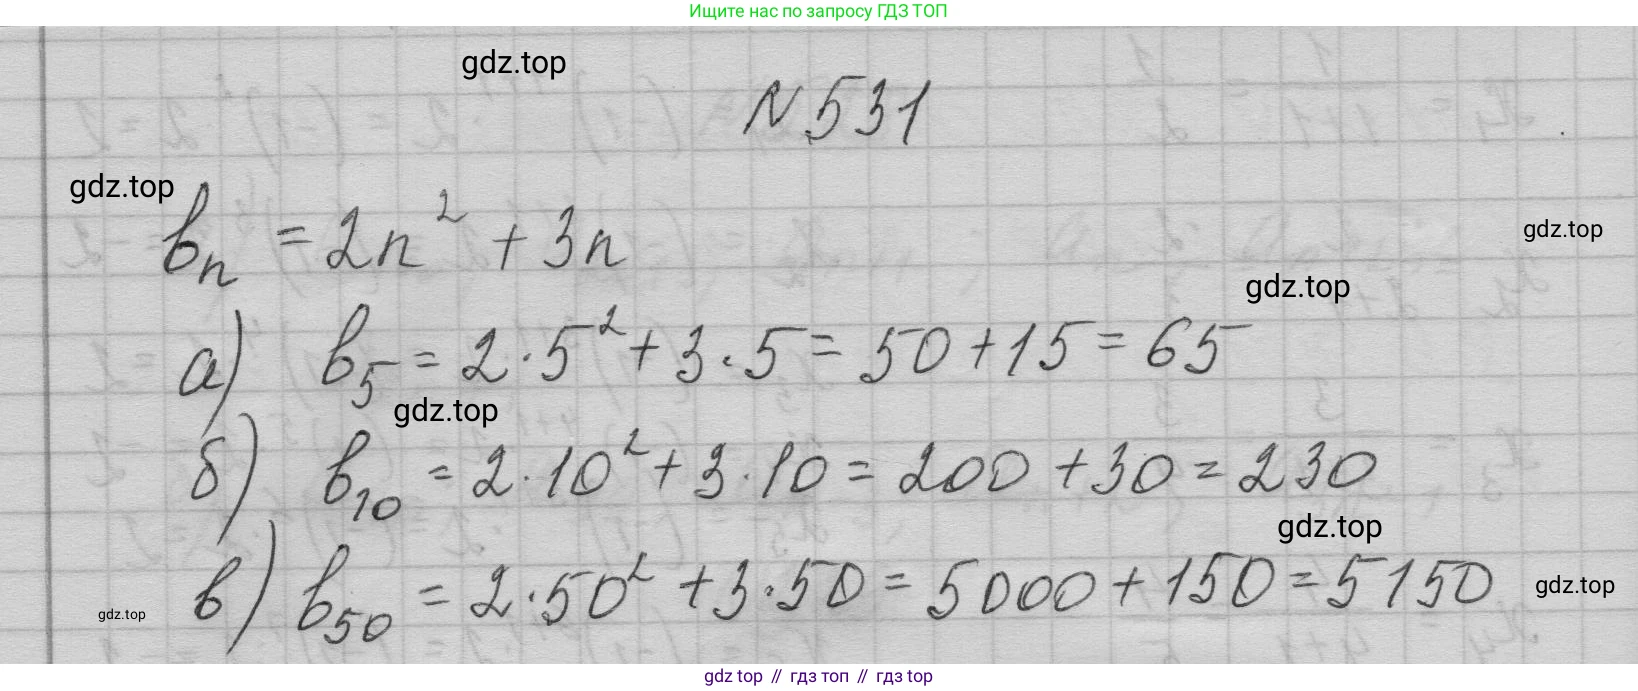 Ищите нас по запросу ГДЗ ТОП
gdz.top
N 531
gdz.top
bₙ = 2n² + 3n
gdz.top
gdz.top
а) b₅ = 2·5² + 3·5 = 50 + 15 = 65
gdz.top
б) b₁₀ = 2·10² + 3·10 = 200 + 30 = 230
gdz.top
в) b₅₀ = 2·50² + 3·50 = 5000 + 150 = 5150
gdz.top
gdz.top
gdz top // гдз топ // гдз top